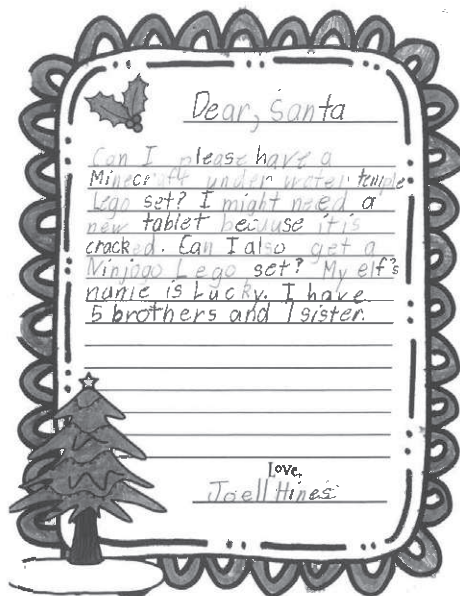 Dear, Santa
Can I please have a
Minecraft under water temple
Lego set? I might need a
new tablet because it is
cracked. Can I also get a
Ninjago Lego set? My elf's
name is Lucky. I have
5 brothers and 1 sister.
Love,
Joell Hines